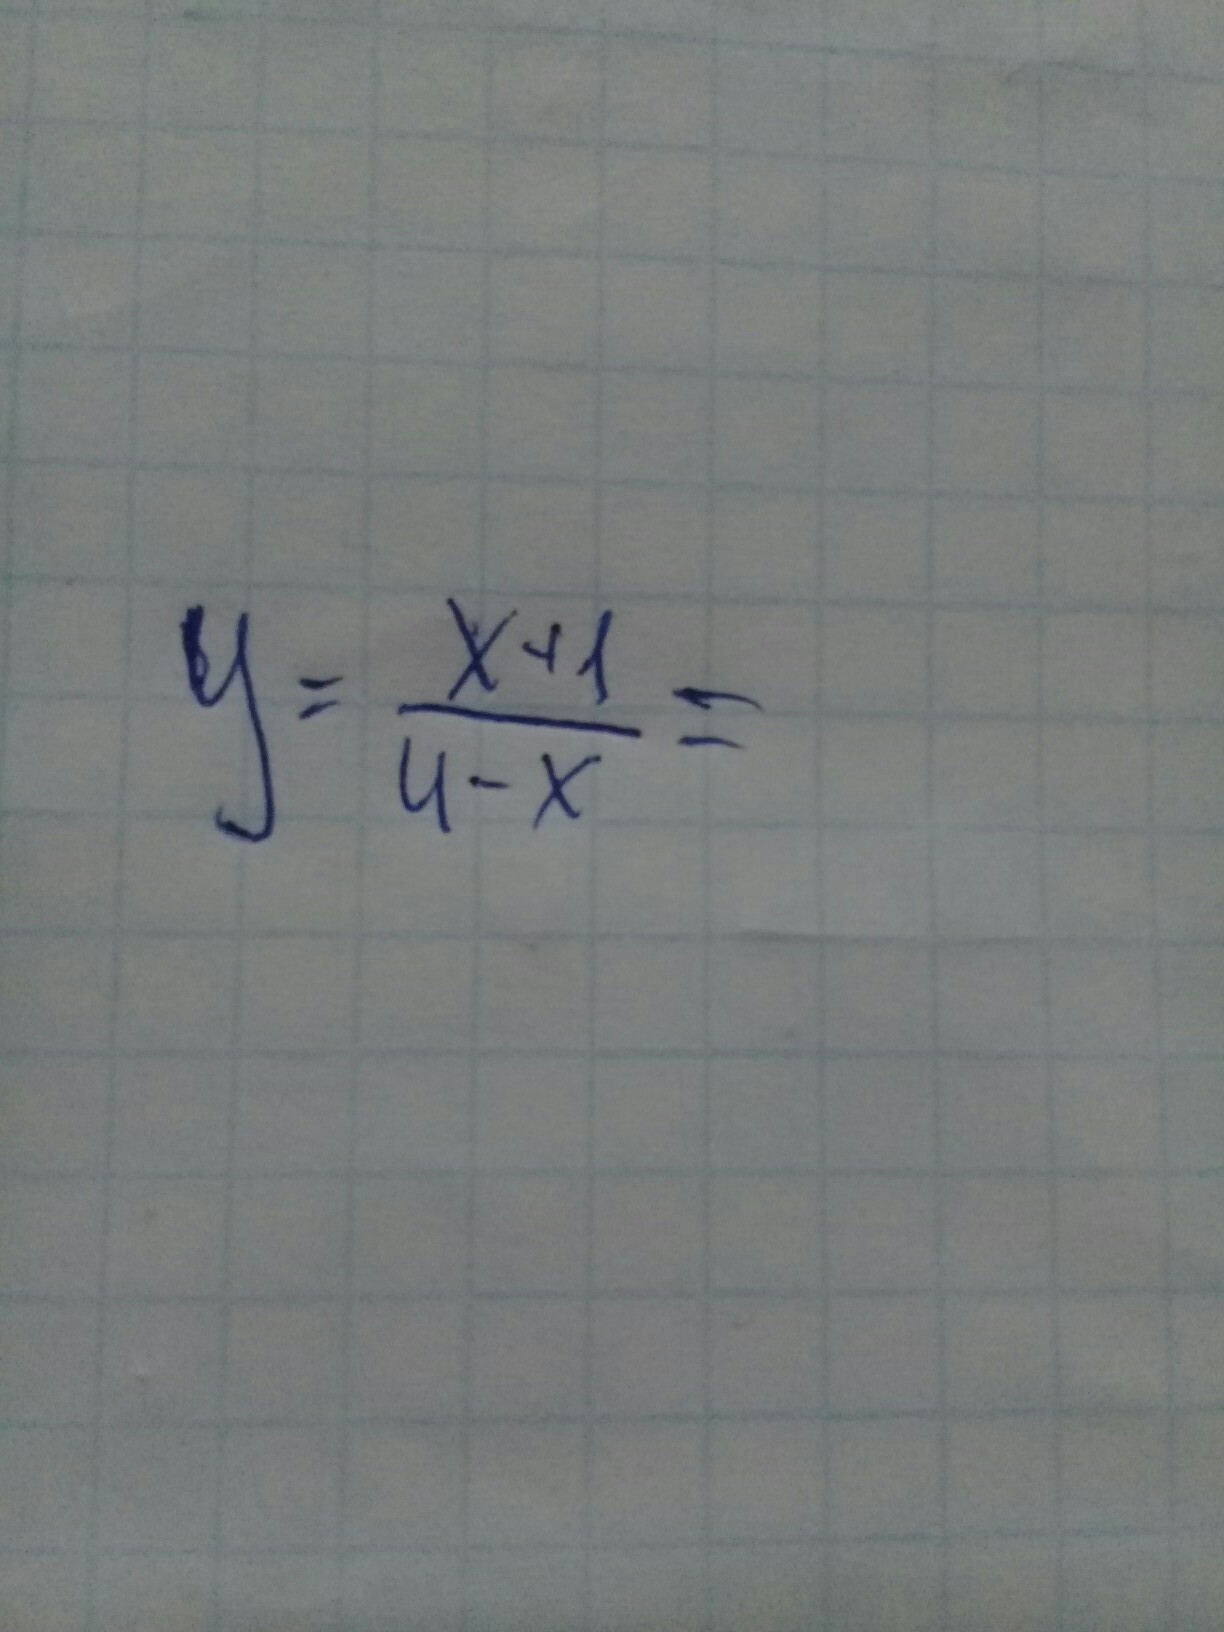 y = \frac{x+1}{4-x} =